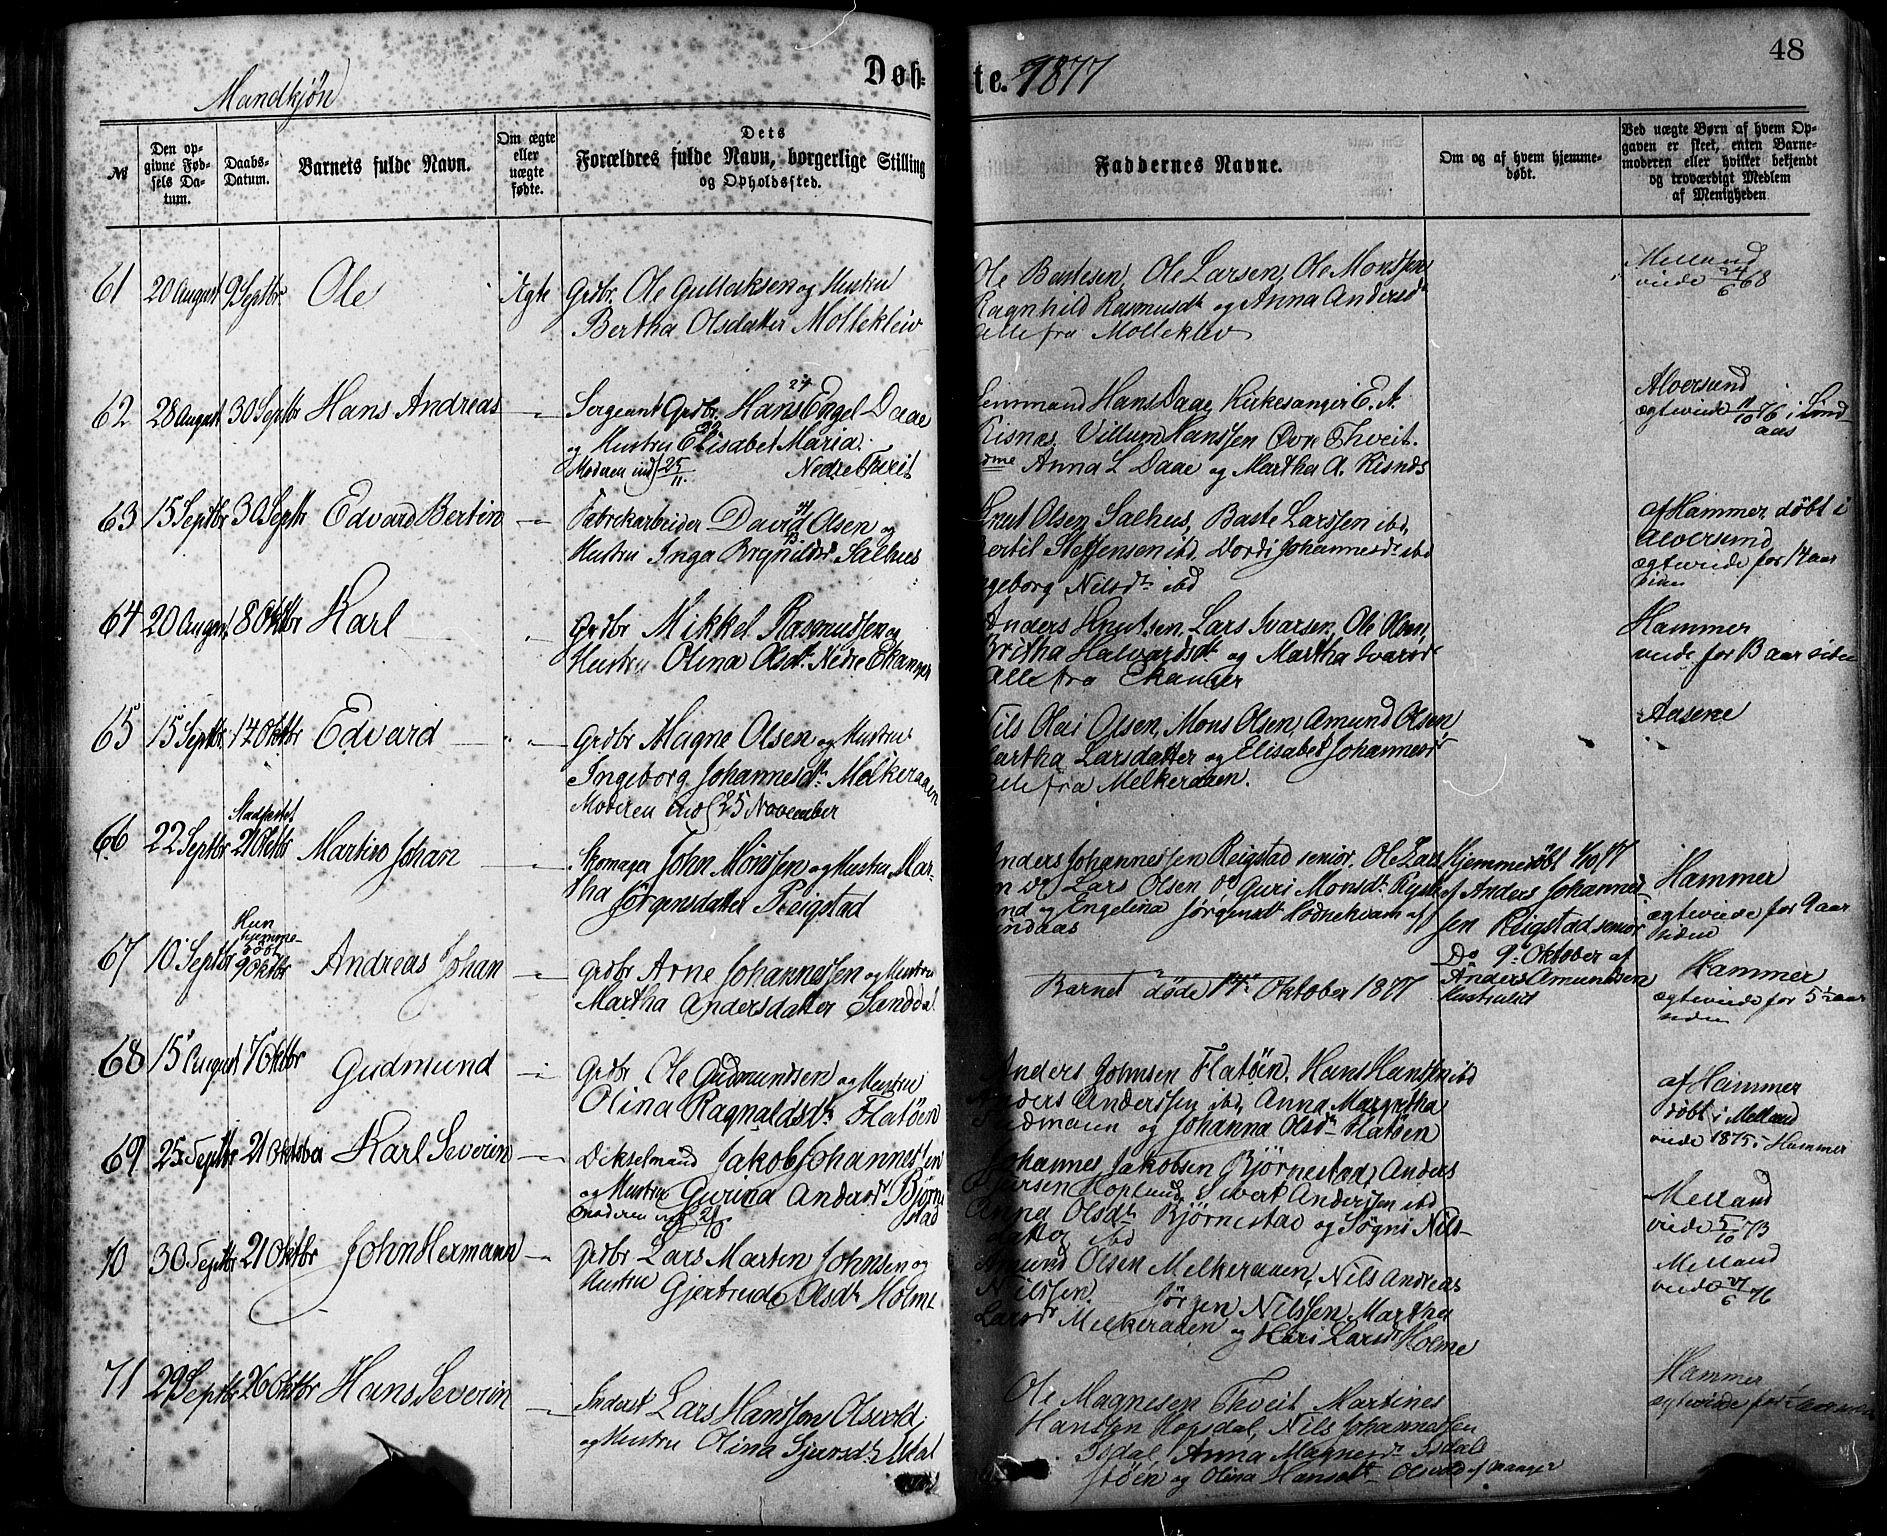 48
Mandkjøn
Døb- te. 1877
№
Den opgivne Fødsels Datum.
Daabs-Datum.
Barnets fulde Navn.
Om ægte eller uægte fødte.
Dets Forældres fulde Navn, borgerlige Stilling og Opholdssted.
Faddernes Navne.
Om og af hvem hjemmedøbt.
Ved uægte Børn af hvem Opgaven er skeet, enten Barnemoderen eller hvilket bekjendt og troværdigt Medlem af Menigheden
61 20 August 9 Septbr Ole Ægte Grdbr. Ole Gullaksen og Hustru
Bertha Olsdatter Mollekleiv
Ole Bertesen, Ole Larsen, Ole Monssen
Ragnhild Rasmusdt og Anna Andersdt
alle fra Molleklev
Melland
viede 24/6 68
62 28 August 30 Septbr Hans Andreas
Sergeant Grdbr. Hans Engel Daae 24
og Hustru Elisabet Maria 32
Moderen ind 25/11 Nedre Thveit
Lensmand Hans Daae, Kirkesanger E. A.
Risnæs, Villum Hanssen Øvre Thveit.
Anna L Daae og Martha A. Risnes
Alversund
ægteviede 11/10 76 i Lindaas
63 15 Septbr 30 Septbr Edvard Bertin
Fabrikarbeider David Olsen og
Hustru Inga Brynildsdt Salhus
Knut Olsen Salhus, Baste Larssen ibd,
Bertil Steffensen ibd. Dordi Johannesdt ibd
Ingeborg Nilsdt ibd
af Hammer, døbt i
Alversund
ægteviede for 14 aar
siden
64 20 August 8 Oktbr Karl
Grdbr Mikkel Rasmussen og
Hustru Olina Olsdt. Nedre Ekanger
Anders Knutsen, Lars Ivarsen, Ole Olsen,
Britha Halvardsdt og Martha Ivarsdt
Alle fra Ekanger
Hammer
viede for 13 aar siden
65 15 Septbr 14 Oktbr Edvard
Grdbr Magne Olsen og Hustru
Ingeborg Johannesdt. Melkeraaen
Moderen ind 25 November
Nils Olai Olsen, Mons Olsen, Amund Olsen
Martha Larsdatter og Elisabet Johannesdt
Alle fra Melkeraaen.
Aasene
66 22 Septbr Stadfæstet 21 Oktbr Martin Johan
Skomager John Monssen og Hustru Mar-
tha Jørgensdatter Reigstad
Anders Johannessen Reigstad senior. Ole Lars
en og Lars Olsen Guri Monsdt
og Engelina Jørgensdt Lodnekvam af
Lindaas
Hjemmedøbt
af Anders Johannes-
sen Reigstad senior
Hammer
ægteviede for 9 aar
siden
67 10 Septbr Kun hjemmedøbt 9 Oktbr Andreas Johan
Grdbr Arne Johannessen og Hustru
Martha Andersdatter Sanddal
Barnet døde 14 Oktober 1877
Do 9 Oktober af
Anders Amundsen
Hammer
ægteviede for 5½ aar
siden
68 15 August 7 Oktbr Gudmund
Grdbr Ole Gudmundsen og Hustru
Olina Ragnaldsdt. Flatøen
Anders Johnsen Flatøen, Hans Hansen ibd
Anders Anderssen ibd, Anna Margretha
og Johanna Olsdt Flatøen
af Hammer
døbt i Melland
viede 1875 i Hammer
69 25 Septbr 21 Oktober Karl Severin
Dikselmand Jakob Johannessen
og Hustru Gurina Andersdt Bjørne
stad
Moderen ind
Johannes Jakobsen Bjørnestad, Anders
Hoplund, Sivert Anderssen ibd
Anna Olsdt Bjørnestad og Søgni Nils-
datter ibd
Melland
viede 5/10 73
70 30 Septbr 21 Oktbr John Hermann
Grdbr Lars Marten Johnsen og
Hustru Gjertrude Olsdt. Holme
Amund Olsen Melkeraaen, Nils Andreas
Nilssen, Jørgen Nilssen, Martha
Larsdt Melkeraaen og Kari Larsdt Holme
Melland
viede 24/6 76
71 29 Septbr 26 Oktbr Hans Severin
Inderst Lars Hanssen Osvold
og Hustru Olina Sjursdt. Isdal
Ole Magnesen Thveit Martines
Hansen Hopsdal, Nils Johannessen
Isdal, Anna Magnesdt Isdal-
støen og Olina Hansdt Osvold af Manger
Hammer
ægteviede for